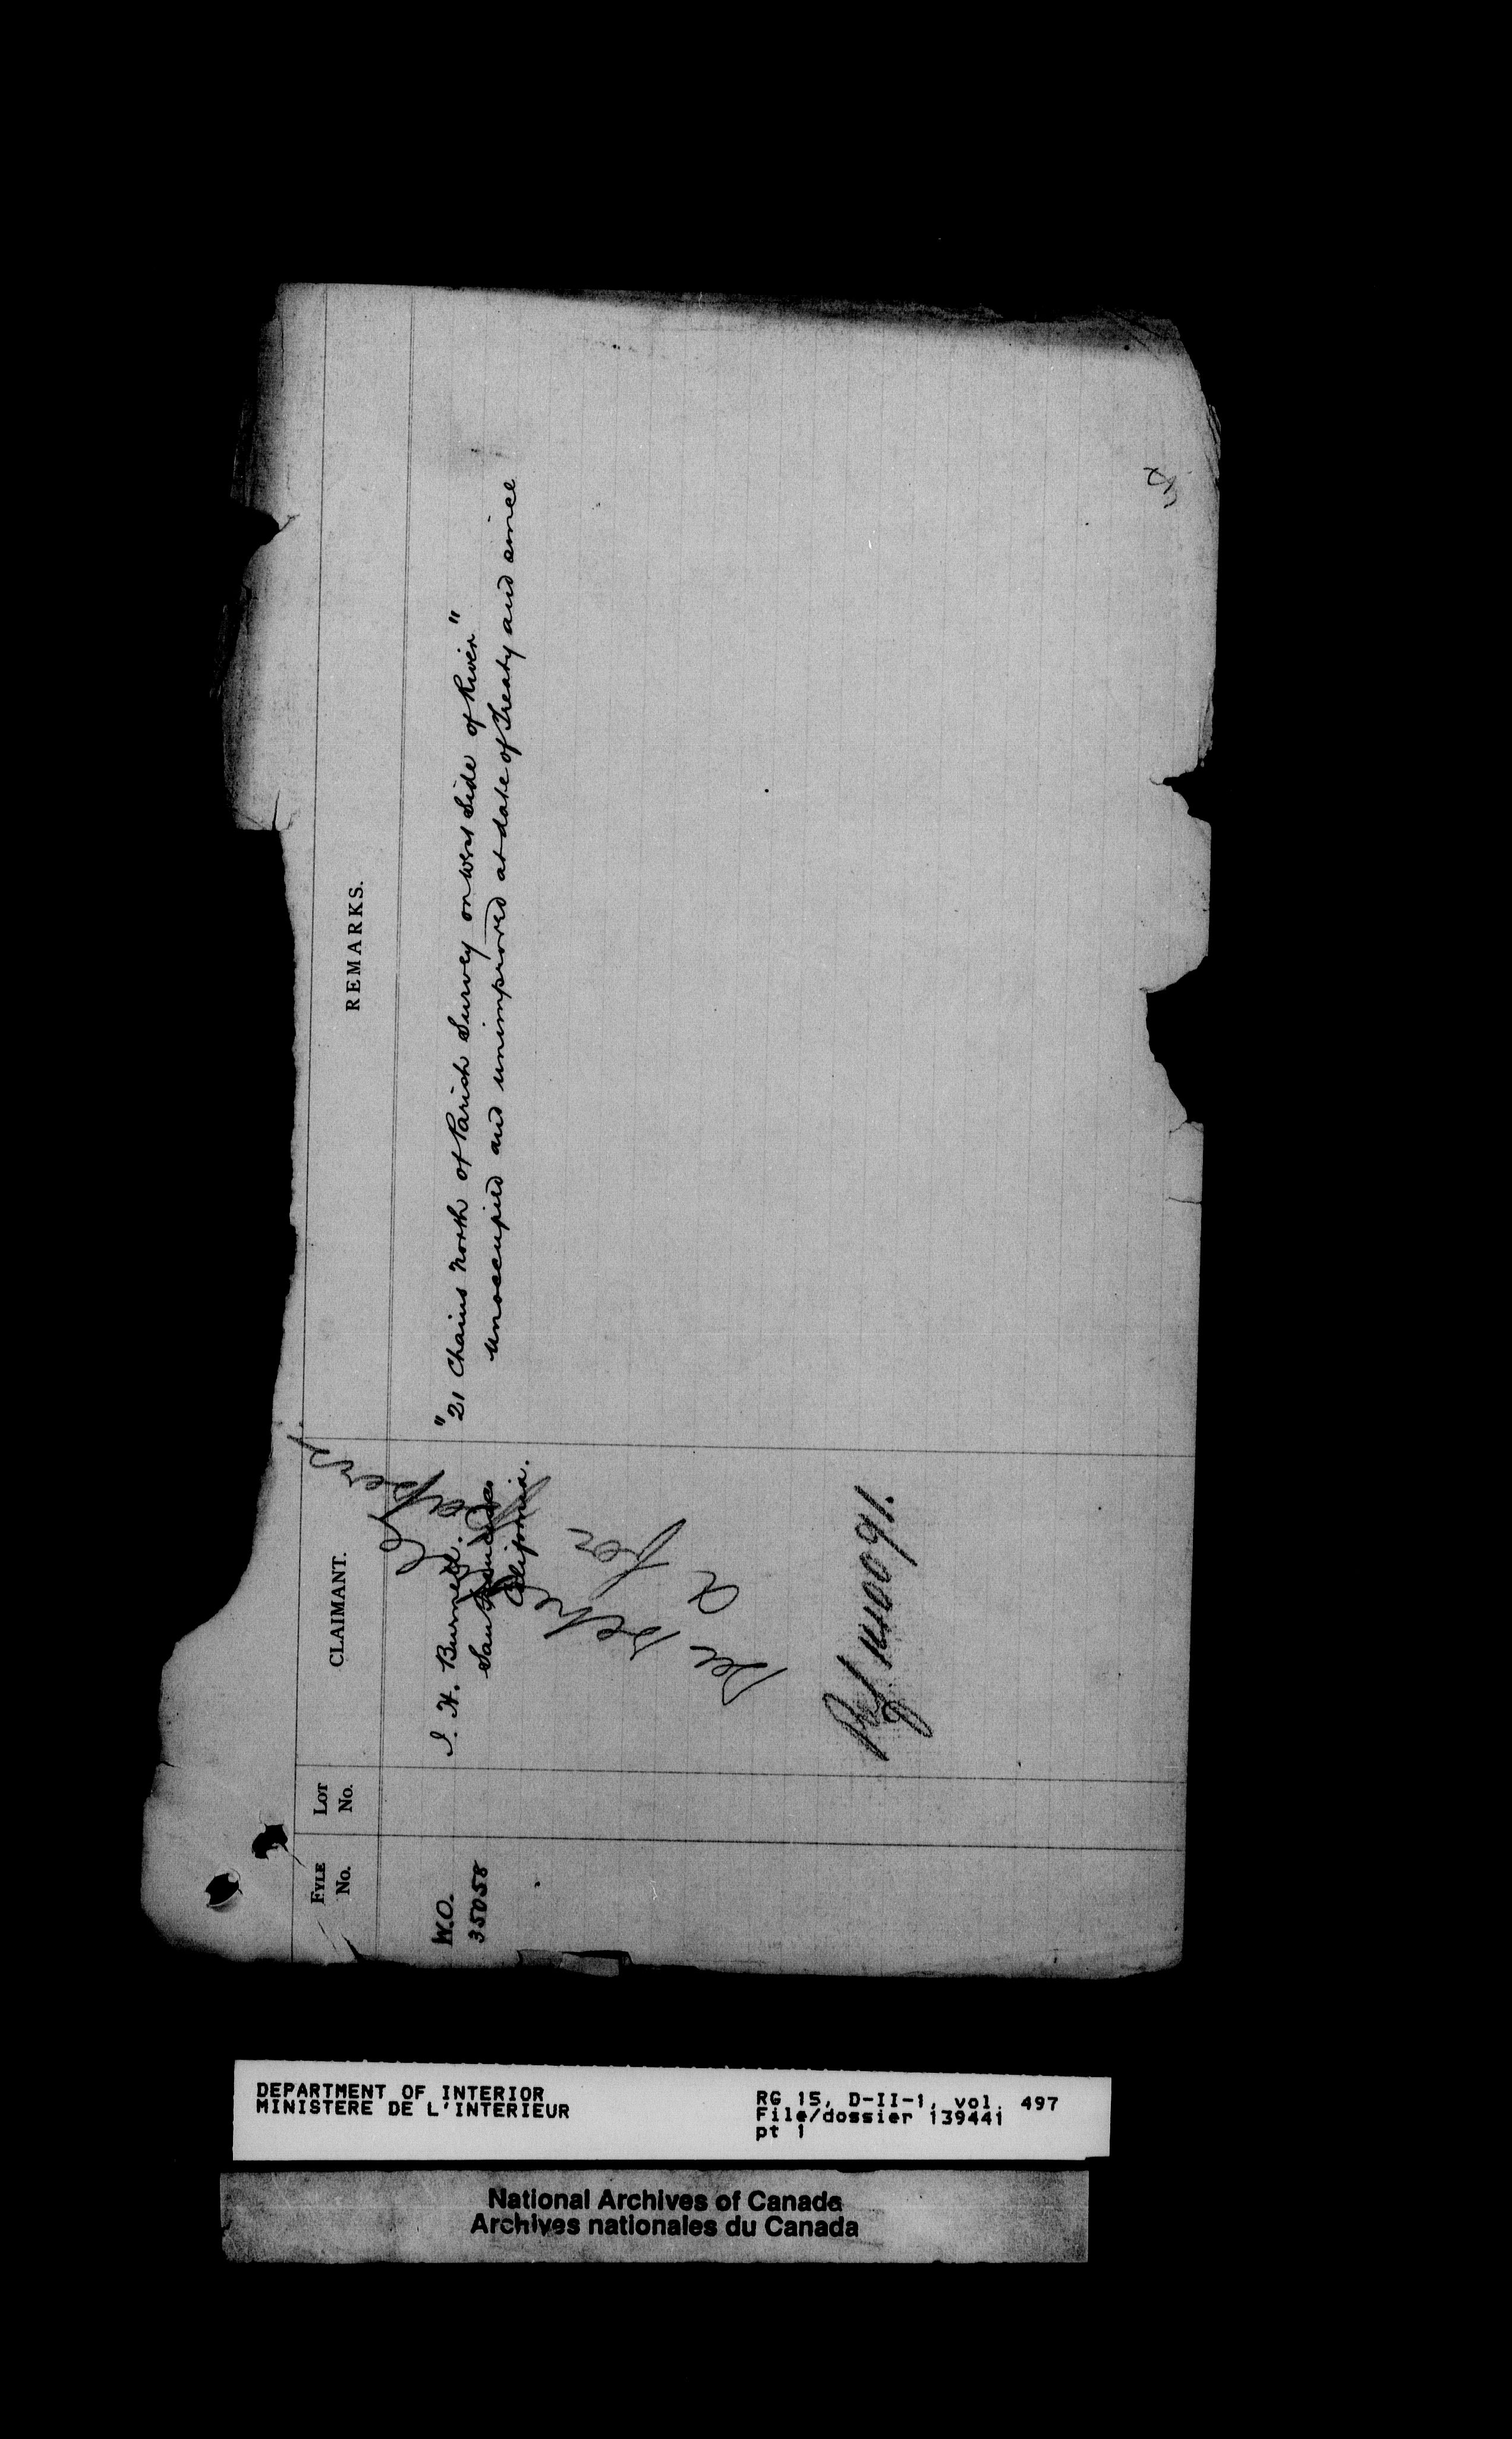 FYLE No.
LOT No.
CLAIMANT.
REMARKS.
W.O.
35058
I. H. Burnell.
San Francisco
California.
"21 Chains North of Parish Survey on West Side of River"
unoccupied and unimproved at date of Treaty and since
papers
See
a
for
Ref
DEPARTMENT OF INTERIOR
MINISTERE DE L'INTERIEUR
RG 15, D-II-1, vol. 497
File/dossier 139441
pt 1
National Archives of Canada
Archives nationales du Canada